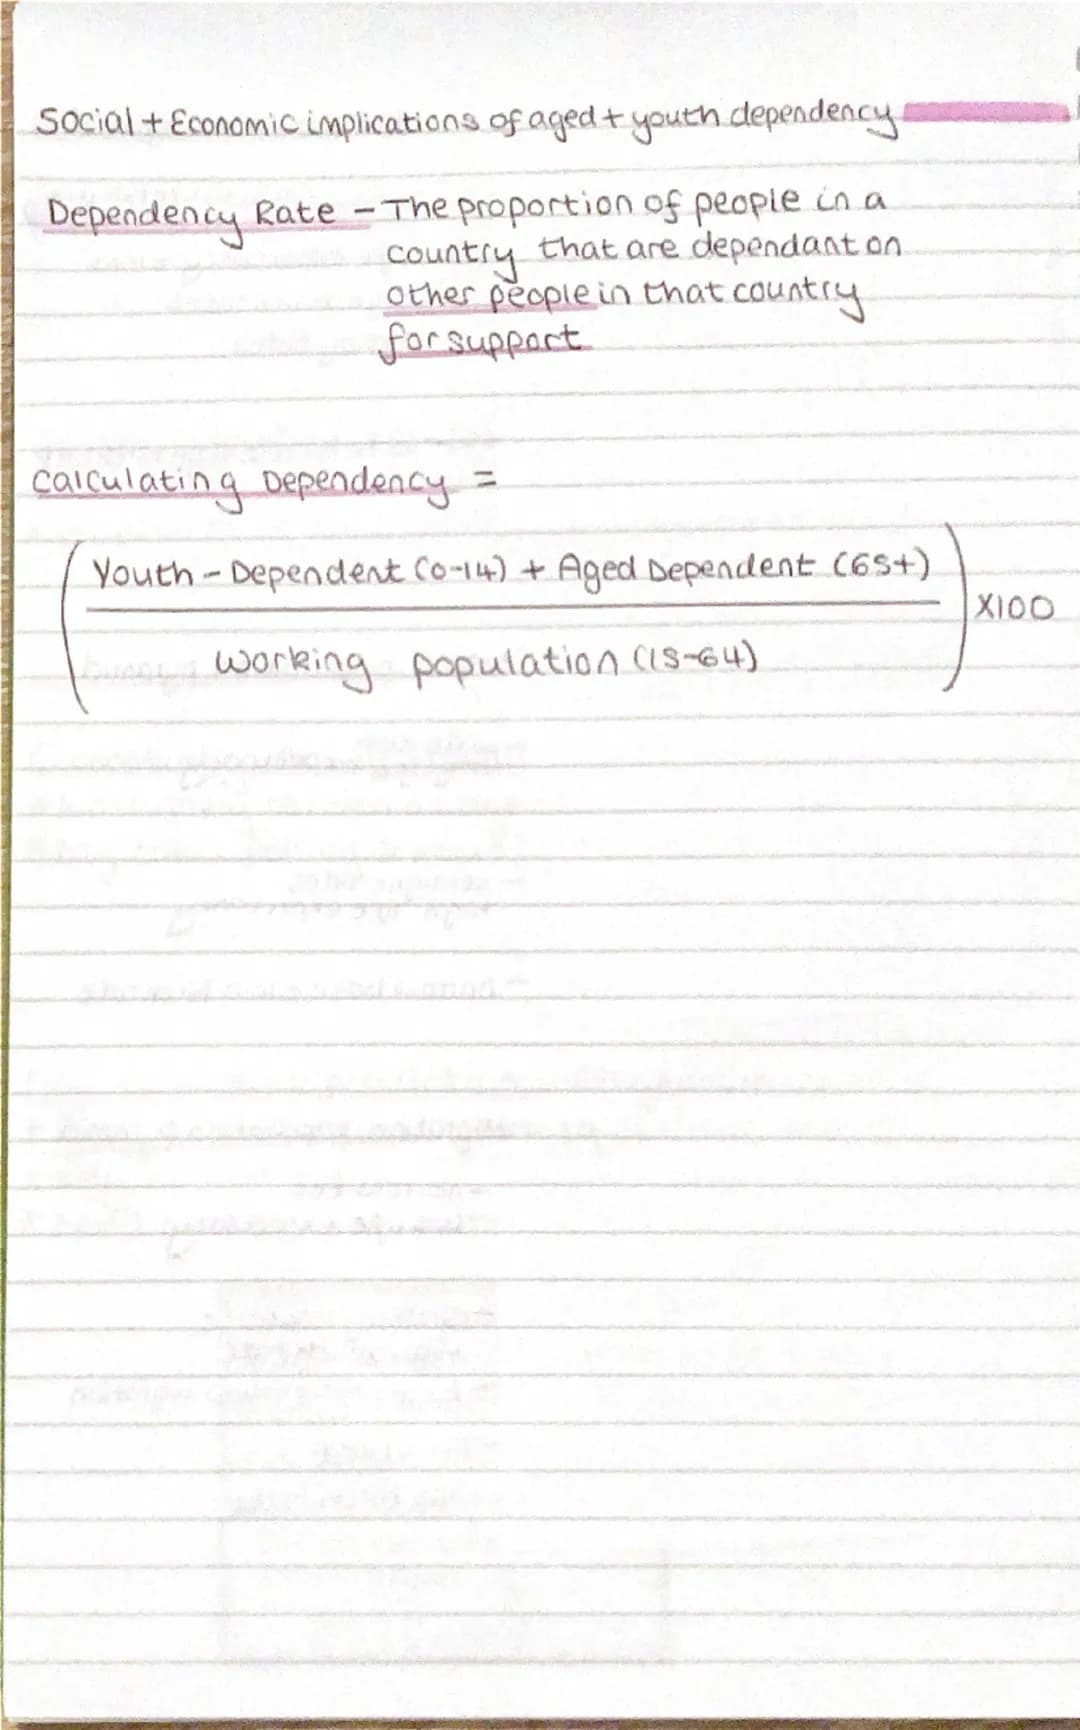 Social + Economic implications of aged + youth dependency
Dependency Rate - The proportion of people in a
country that are dependant on
other people in that country
for support
Calculating Dependency =
(Youth - Dependent (0-14) + Aged Dependent (65+)
Working population (15-64)) X100